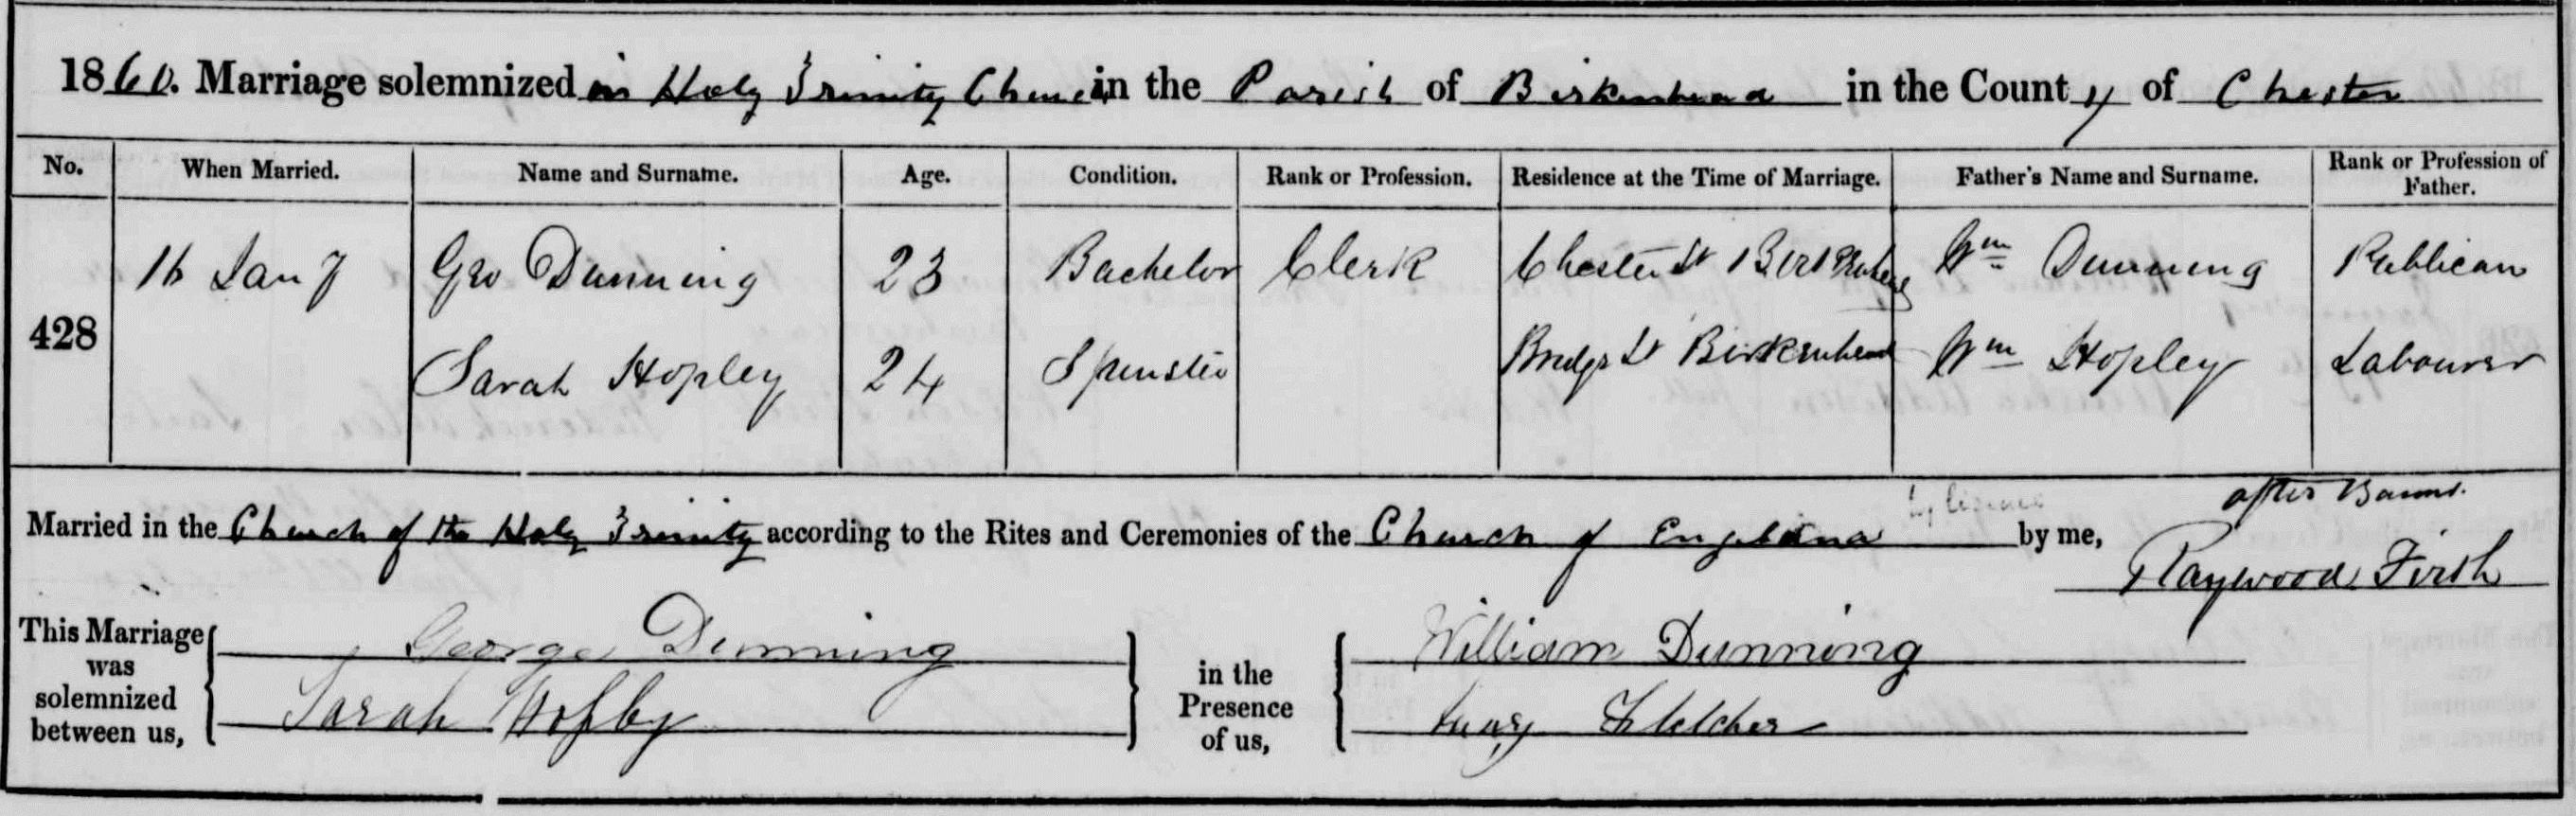 1860. Marriage solemnized in Holy Trinity Church in the Parish of Birkenhead in the County of Chester
No. When Married. Name and Surname. Age. Condition. Rank or Profession. Residence at the Time of Marriage. Father's Name and Surname. Rank or Profession of Father.
428 16 Jany Geo Dunning 23 Bachelor Clerk Chester St Birkenhead Wm Dunning Publican
Sarah Hopley 24 Spinster Bridge St Birkenhead Wm Hopley Labourer
by licence after Banns.
Married in the Church of the Holy Trinity according to the Rites and Ceremonies of the Church of England by me,
Raywood Firth
This Marriage was solemnized between us, George Dunning in the Presence of us, William Dunning
Sarah Hopley Fletcher